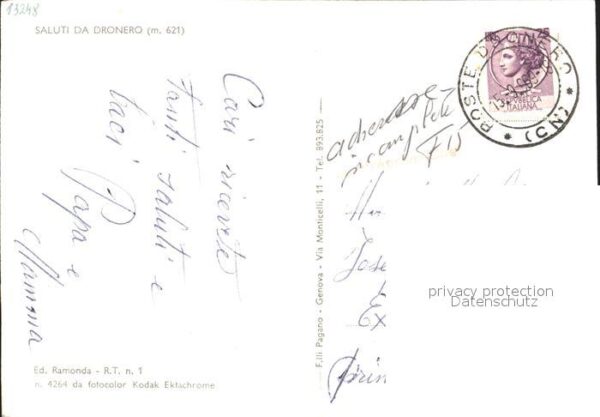 13248
SALUTI DA DRONERO (m. 621)
Cari ricevete
tanti saluti e
baci Papa e
Mamma
Ed. Ramonda - R.T. n. 1
n. 4264 da fotocolor Kodak Ektachrome
F.lli Pagano - Genova - Via Monticelli, 11 - Tel. 893.825
25
REPUBBLICA
ITALIANA
POSTE DRONERO (CN)
adresse
incomplète
Jose
Ex
privacy protection
Datenschutz